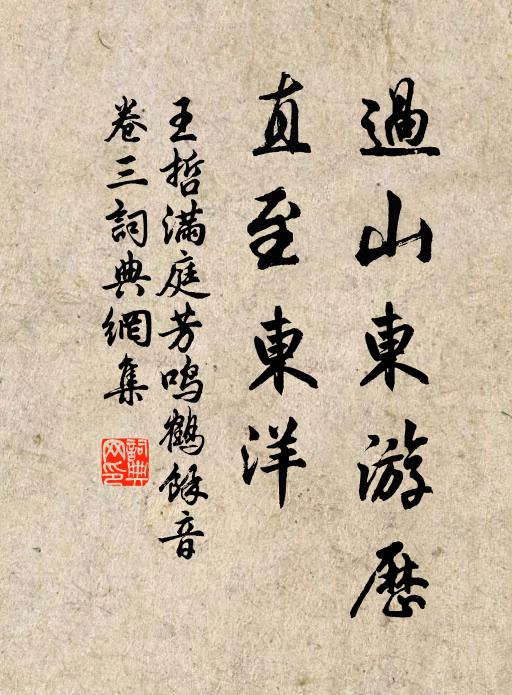 過山東游歷
直至東洋
王哲满庭芳鸣鶴餘音
卷三詞典網集
詞典網印